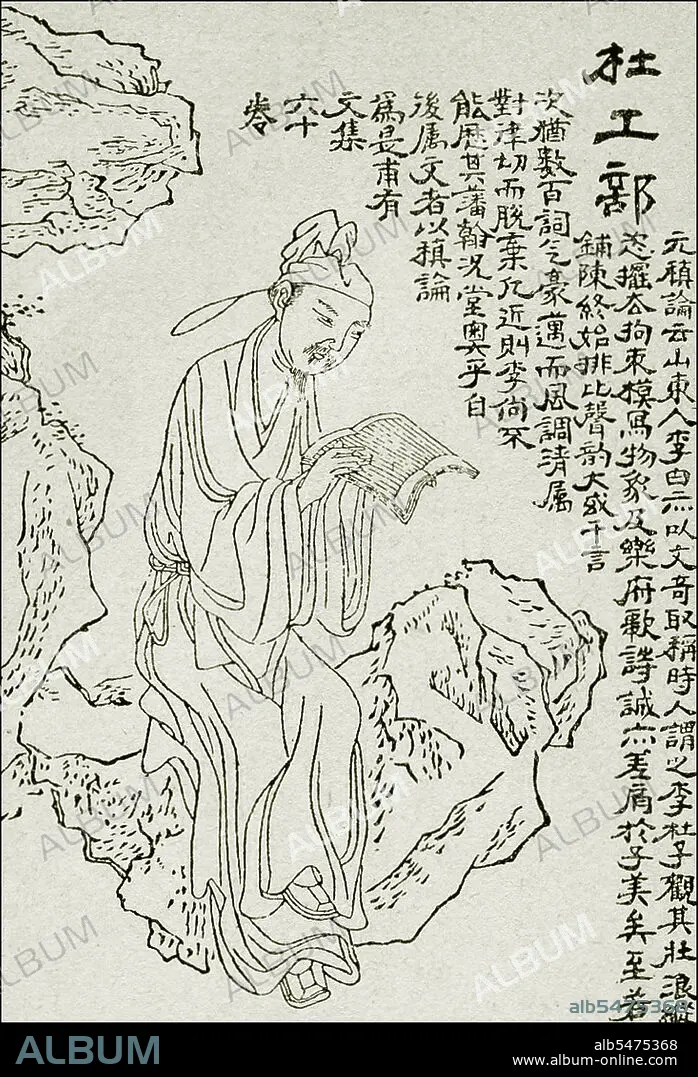 杜工部
元稹論云山東人李白亦以文奇取稱時人謂之李杜予觀其壯浪縱
恣擺去拘束模寫物象及樂府歌詩誠亦差肩於子美矣至若
鋪陳終始排比聲韵大或千言
次猶數百詞气豪邁而風調清属
對律切而脫棄凡近則李尚不
能歷其藩翰况堂奧乎自
後属文者以稹論
為是甫有
文集
六十
卷
alb5475368
ALBUM
alb5475368
www.album-online.com